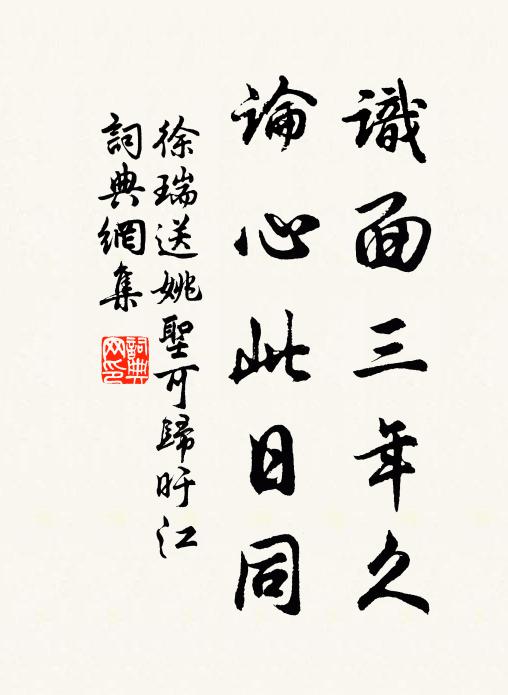 識面三年久
論心此日同
徐瑞送姚聖可歸旴江
詞典網集
詞典網印